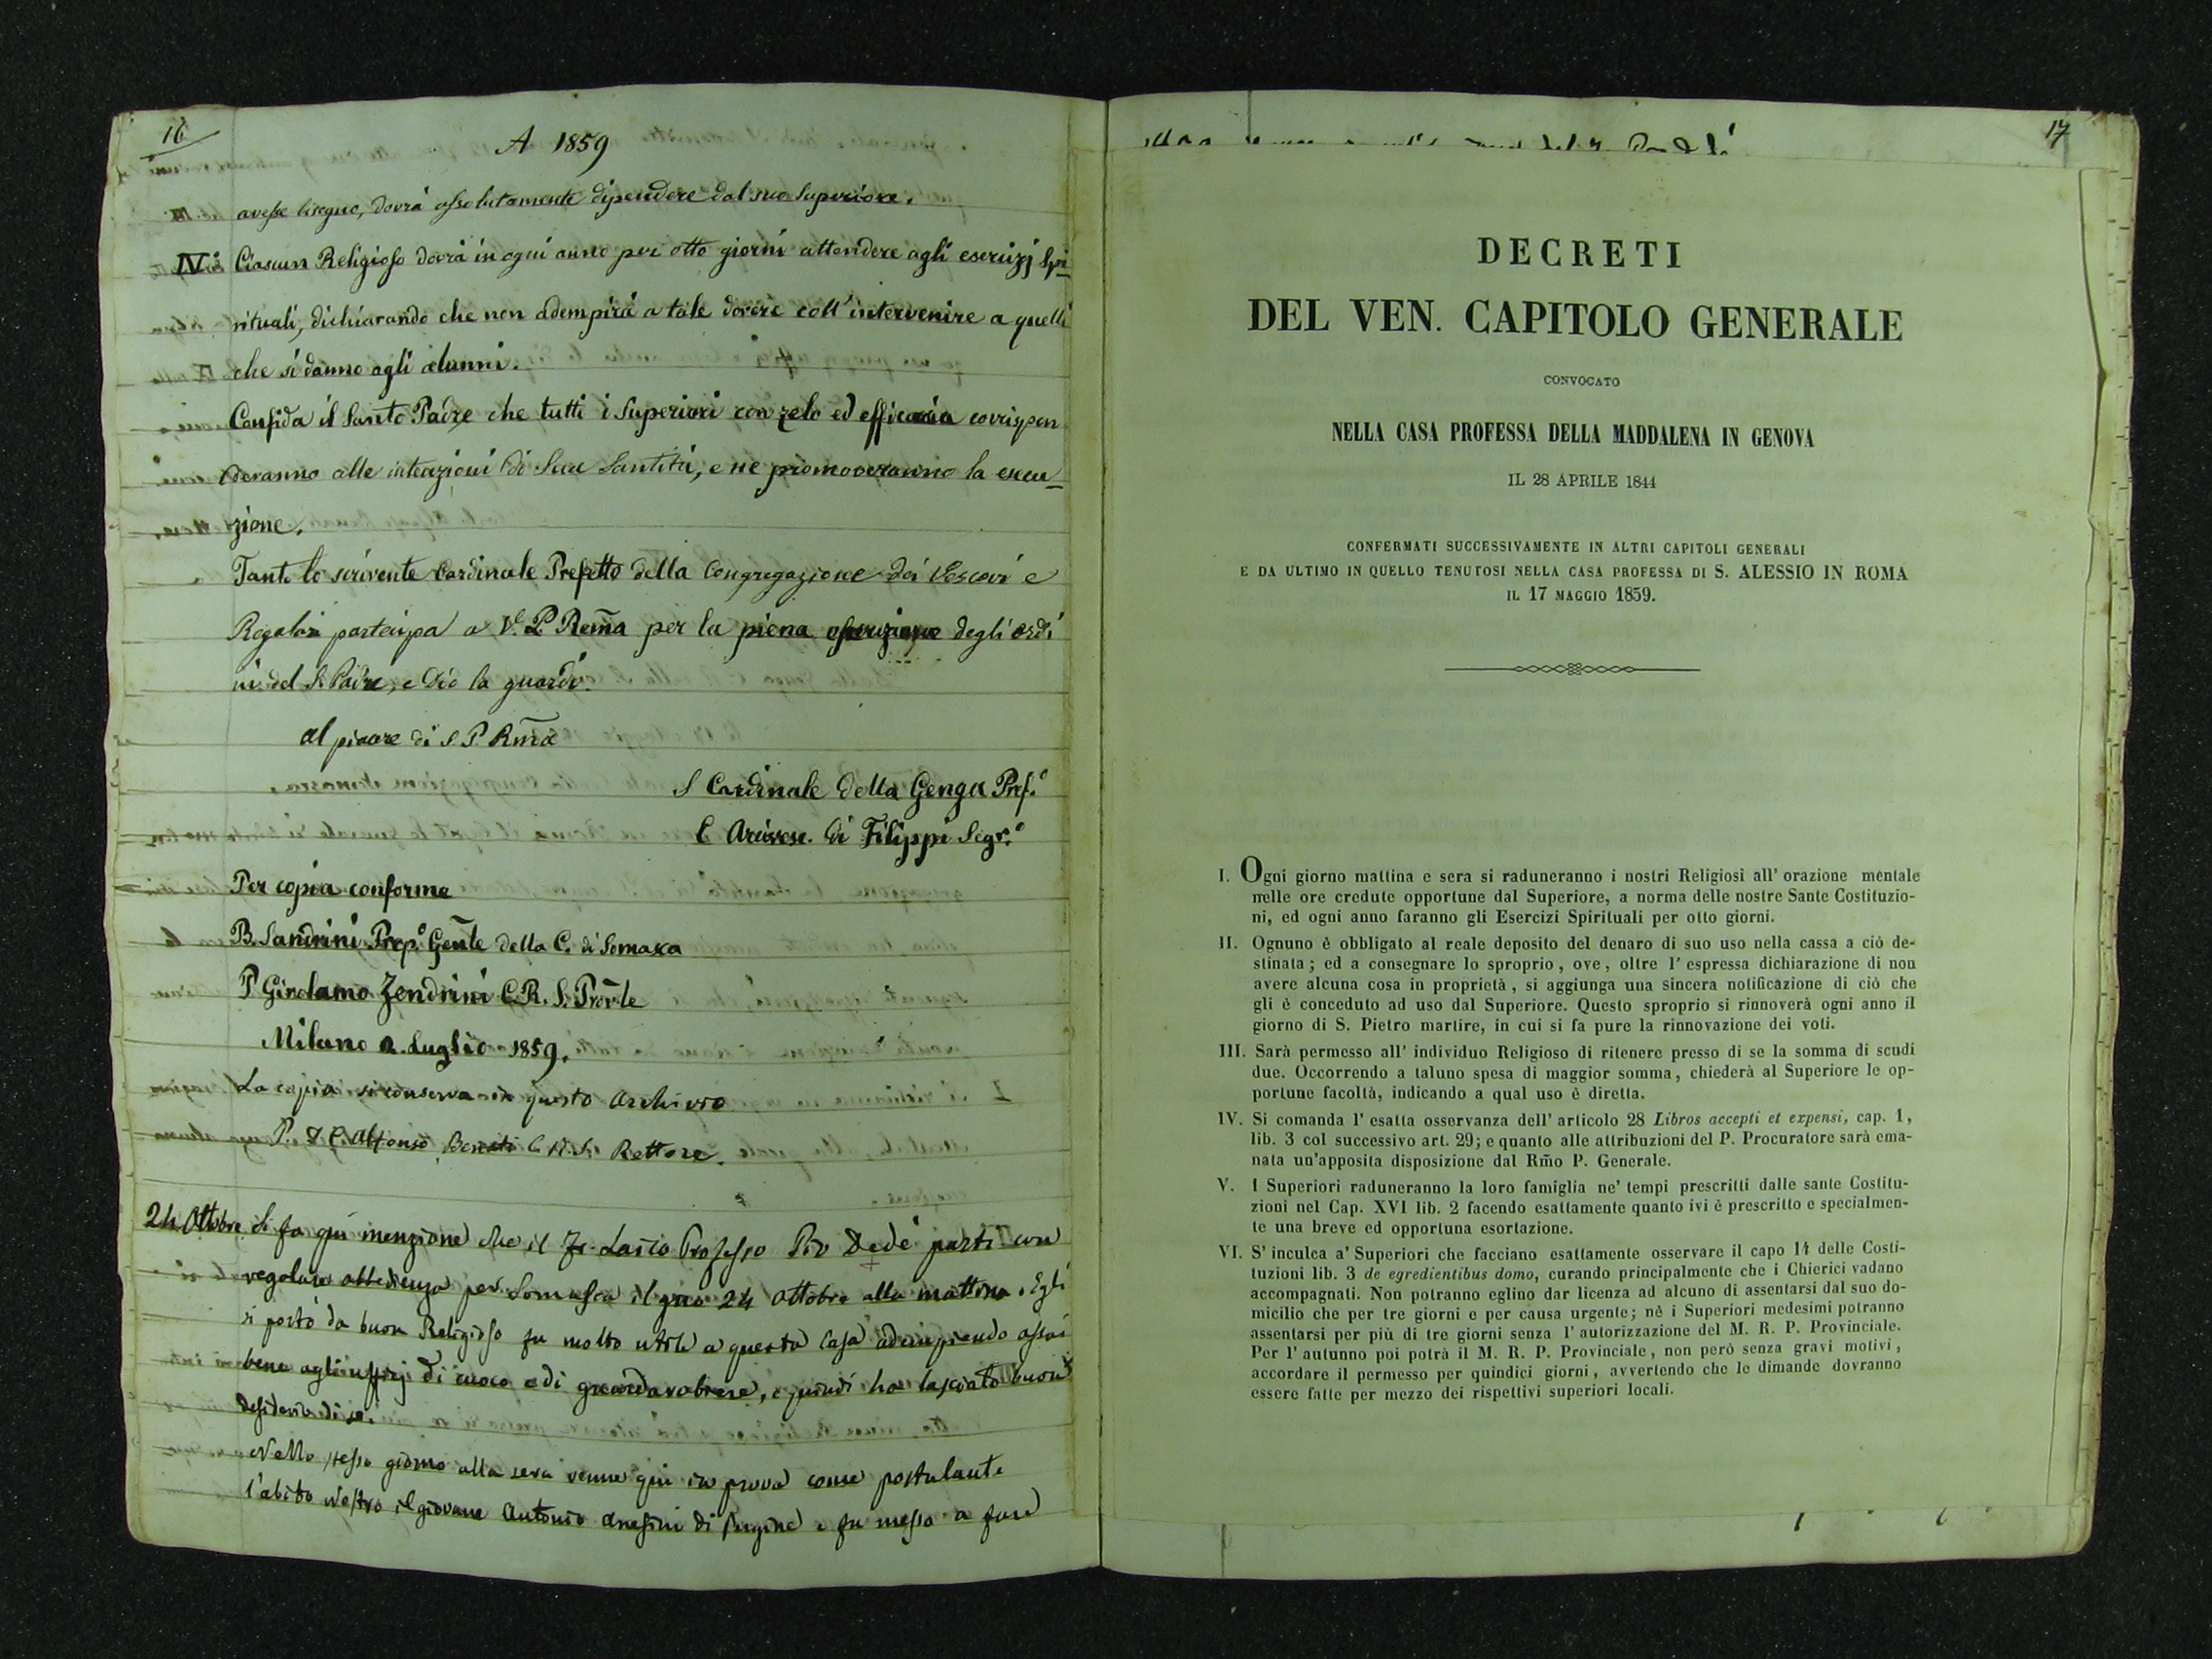 16
A 1859
avesse bisogno, dovrà assolutamente dipendere dal suo Superiore.
IV° Ciascun Religioso dovrà in ogni anno per otto giorni attendere agli esercizj Spi-
rituali, dichiarando che non adempirà a tale dovere coll'intervenire a quelli
che si danno agli alunni.
Confida il Santo Padre che tutti i Superiori con zelo ed efficacia corrispon
deranno alle intenzioni di Sua Santità, e ne promoveranno la esecu-
zione.
Tanto lo scrivente Cardinale Prefetto della Congregazione dei Vescovi e
Regolari partecipa a V. P. Rema per la piena esecuzione degli ordi
ni del S. Padre, e Dio la guardi.
al piacere di S. P. Rma
S Cardinale della Genga Pref.°
C Arcivesc. di Filippi Segr.°
Per copia conforme
B. Sandrini Prep.° Genle della C. di Somasca
P. Girolamo Zendrini C. R. S. Provle
Milano 2. Luglio 1859.
La copia si conserva in questo Archivio
P. D. C. Alfonso C. R. S. Rettore.
24 Ottobre Si fa qui menzione che il Fr. Laico Professo Pio Dedè partì con
regolare obbedienza per Somasca il gno 24 Ottobre alla mattina. Egli
si portò da buon Religioso fu molto utile a questa Casa adempiendo assai
bene agli uffizj di cuoco e di guardarobiere, e quindi ha lasciato buon
desiderio di se.
Nello stesso giorno alla sera venne qui in prova come postulante
l'abito nostro il giovane Antonio Anesini di Pergine e fu messo a fare
17
DECRETI
DEL VEN. CAPITOLO GENERALE
CONVOCATO
NELLA CASA PROFESSA DELLA MADDALENA IN GENOVA
IL 28 APRILE 1844
CONFERMATI SUCCESSIVAMENTE IN ALTRI CAPITOLI GENERALI
E DA ULTIMO IN QUELLO TENUTOSI NELLA CASA PROFESSA DI S. ALESSIO IN ROMA
IL 17 MAGGIO 1859.
I. Ogni giorno mattina e sera si raduneranno i nostri Religiosi all' orazione mentale
nelle ore credute opportune dal Superiore, a norma delle nostre Sante Costituzio-
ni, ed ogni anno faranno gli Esercizi Spirituali per otto giorni.
II. Ognuno è obbligato al reale deposito del denaro di suo uso nella cassa a ciò de-
stinata; ed a consegnare lo sproprio, ove, oltre l' espressa dichiarazione di non
avere alcuna cosa in proprietà, si aggiunga una sincera notificazione di ciò che
gli è conceduto ad uso dal Superiore. Questo sproprio si rinnoverà ogni anno il
giorno di S. Pietro martire, in cui si fa pure la rinnovazione dei voti.
III. Sarà permesso all' individuo Religioso di ritenere presso di se la somma di scudi
due. Occorrendo a taluno spesa di maggior somma, chiederà al Superiore le op-
portune facoltà, indicando a qual uso è diretta.
IV. Si comanda l' esatta osservanza dell' articolo 28 Libros accepti et expensi, cap. 1,
lib. 3 col successivo art. 29; e quanto alle attribuzioni del P. Procuratore sarà ema-
nata un'apposita disposizione dal Rmo P. Generale.
V. I Superiori raduneranno la loro famiglia ne' tempi prescritti dalle sante Costitu-
zioni nel Cap. XVI lib. 2 facendo esattamente quanto ivi è prescritto e specialmen-
te una breve ed opportuna esortazione.
VI. S' inculca a' Superiori che facciano esattamente osservare il capo 14 delle Costi-
tuzioni lib. 3 de egredientibus domo, curando principalmente che i Chierici vadano
accompagnati. Non potranno eglino dar licenza ad alcuno di assentarsi dal suo do-
micilio che per tre giorni e per causa urgente; nè i Superiori medesimi potranno
assentarsi per più di tre giorni senza l' autorizzazione del M. R. P. Provinciale.
Per l' autunno poi potrà il M. R. P. Provinciale, non però senza gravi motivi,
accordare il permesso per quindici giorni, avvertendo che le dimande dovranno
essere fatte per mezzo dei rispettivi superiori locali.